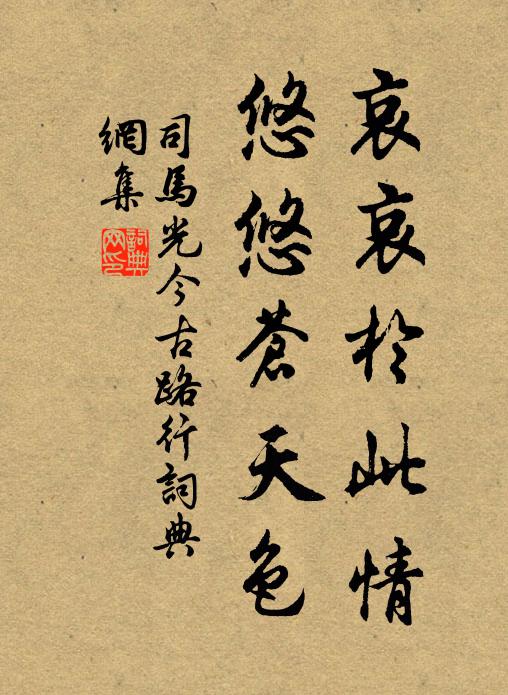 哀哀於此情
悠悠蒼天色
司馬光今古路行詞典
網集
詞典
网印